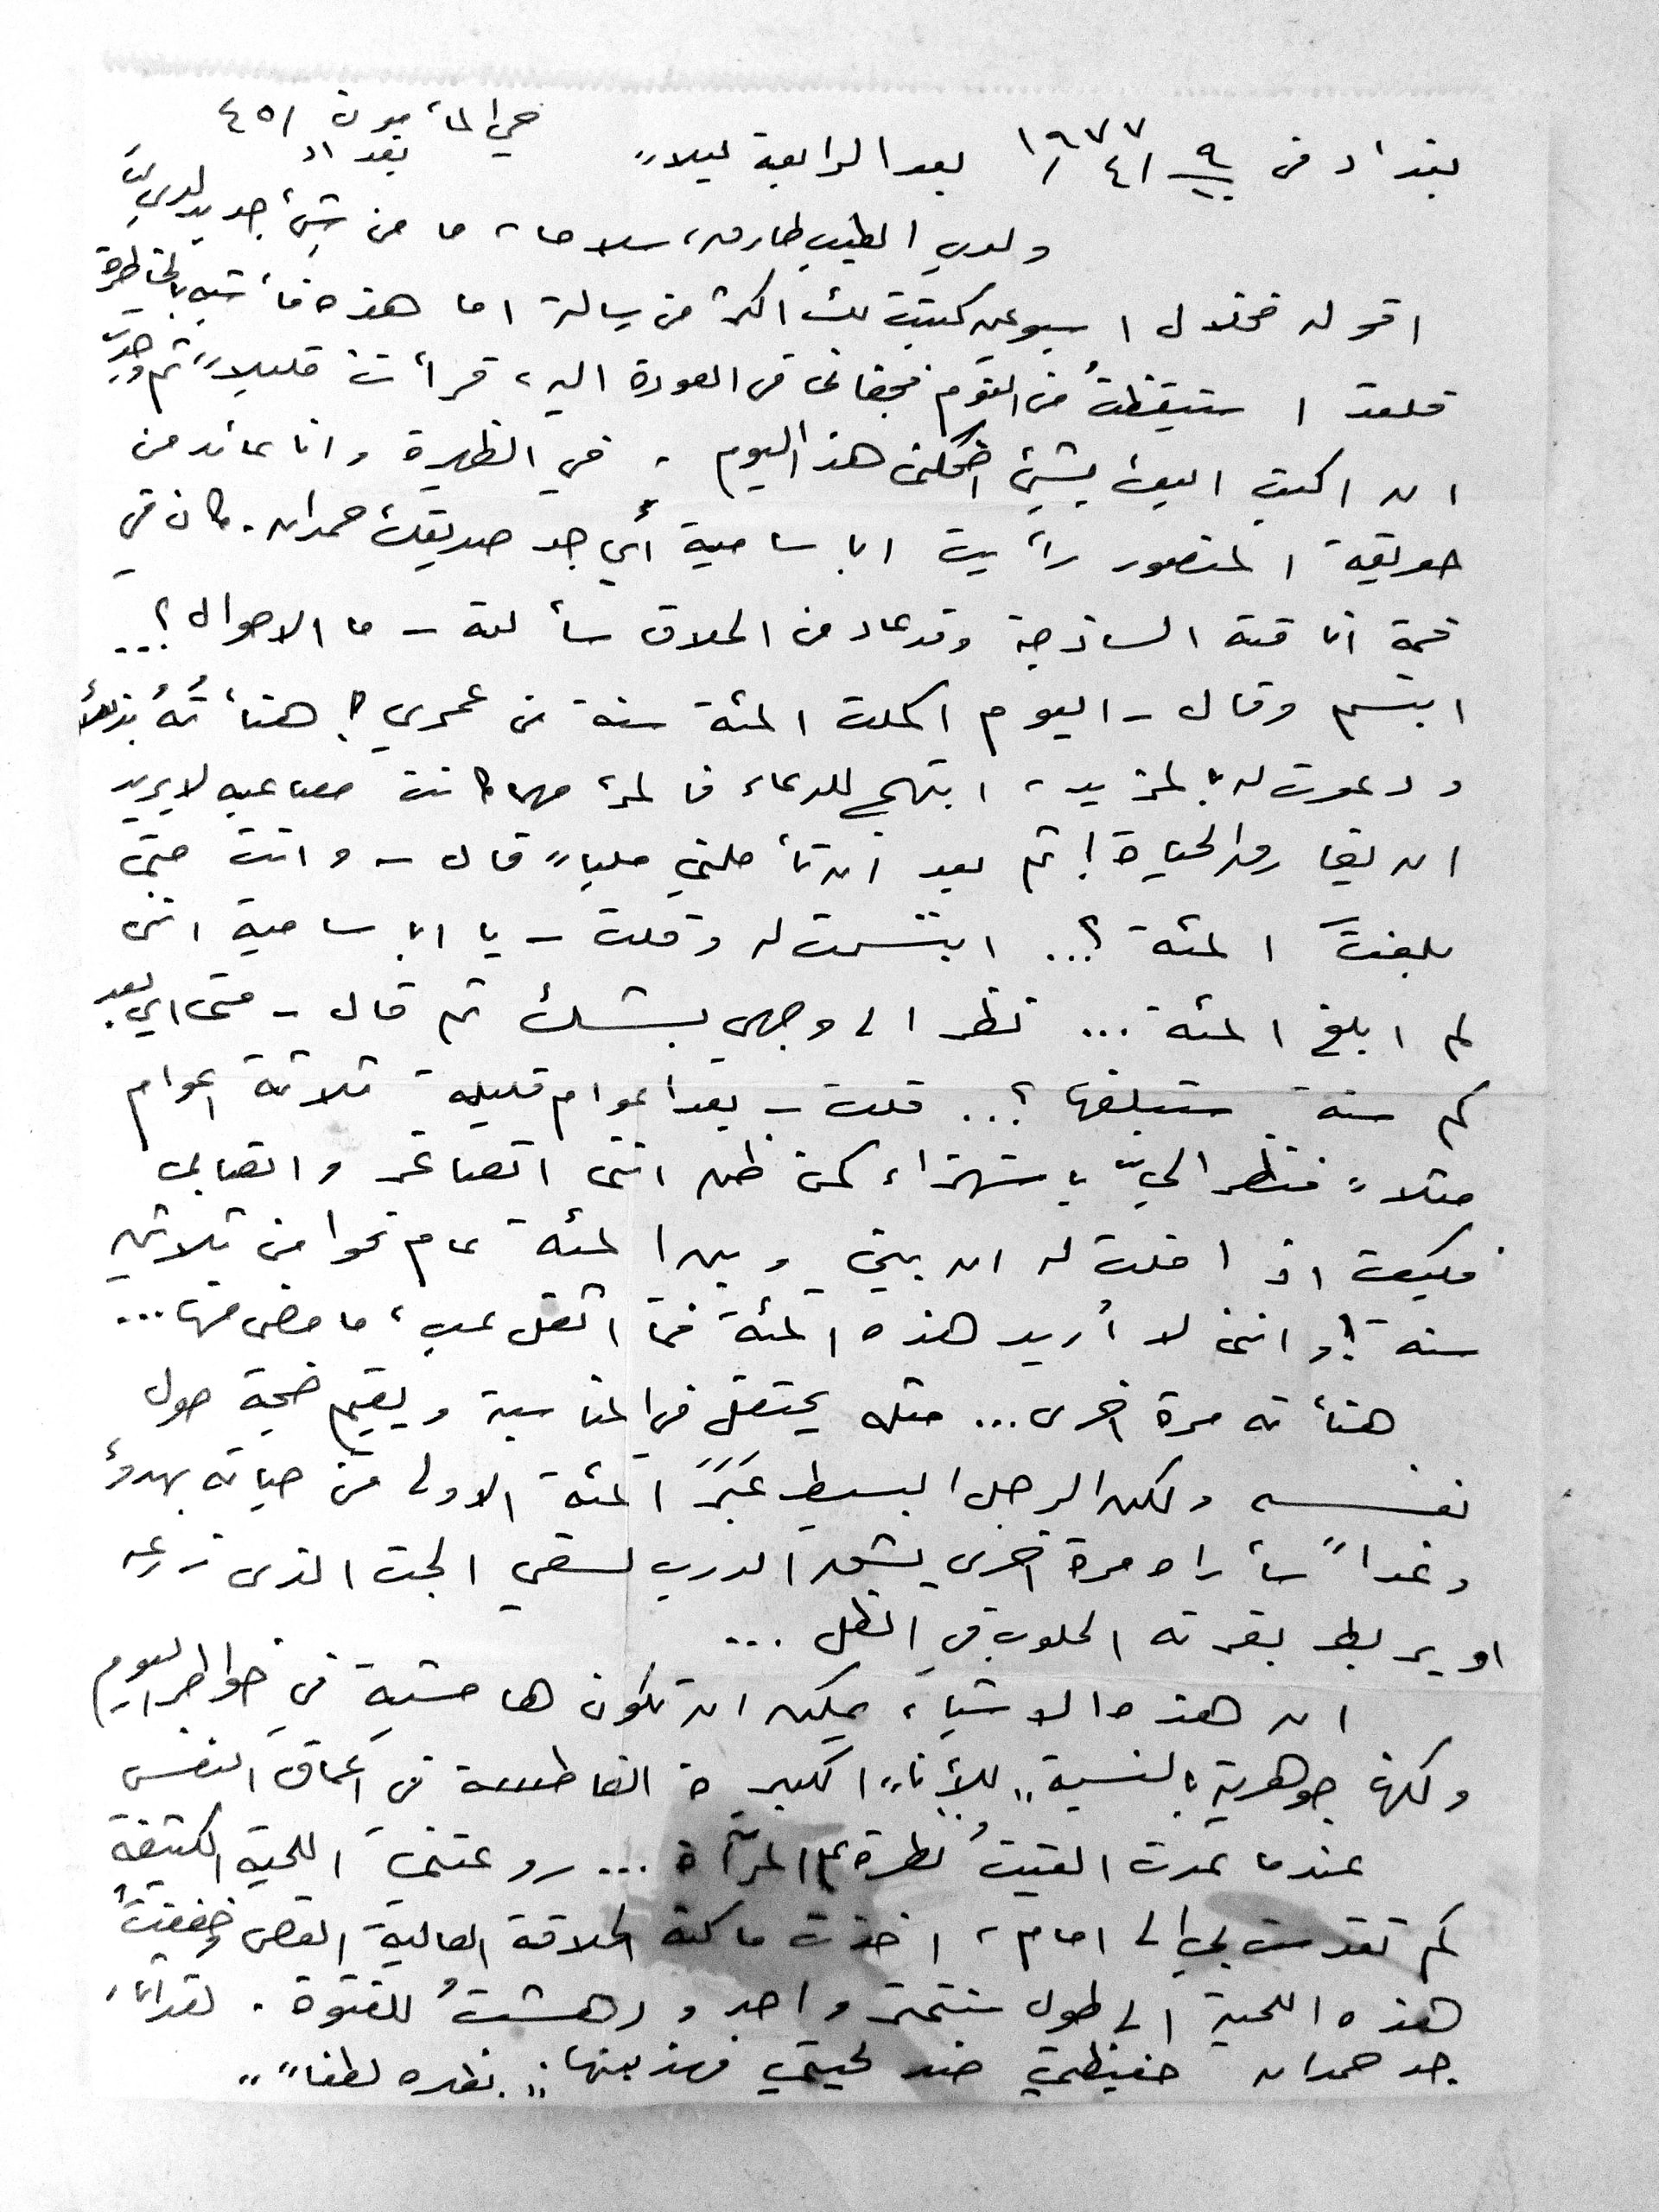 حي المأمون ٤٥١
بغداد
بغداد في ٩/٤/١٩٧٧ بعد الرابعة ليلاً
ولدي الطيب طارق، سلاما، ما من شيء جديد لديَّ
اقوله فخلال اسبوعين كتبت لك اكثر من رسالة اما هذه فأشبه بالخاطرة
فلقد استيقظتُ من النوم فجفاني في العودة اليه، قرأت قليلاً، ثم وجدت
ان اكتب اليك بشيء اضحكني هذا اليوم، في الظهيرة وانا عائد من
حديقة المنصور رأيت ابا سامية أي جد صديقك حمدان. كان في
قمة اناقته الساذجة وقد عاد من الحلاق سألته – ما الاحوال؟..
ابتسم وقال – اليوم اكملت المئة سنة من عمري! هنأتُهُ بذلك
ودعوت له بالمزيد، ابتهج للدعاء فالمرء مهما كانت مصاعبه لا يريد
ان يفارق الحياة! ثم بعد ان تأملني مليا، قال – وانت متى
بلغتَ المئة؟.. ابتسمت له وقلت – يا ابا سامية انني
لم ابلغ المئة... نظر الى وجهي بشك ثم قال – متى اي بعد
كم سنة ستبلغها؟.. قلت – بعد اعوام قليلة ثلاثة اعوام
مثلاً، فنظر اليّ باستهزاء كمن ظن انني اتصاغر واتصابى
فكيف اذا قلت له ان بيني وبين المئة عام نحوا من ثلاثين
سنة؟! وانني لا أريد هذه المئة فما اثقل عبء ما مضى منها...
هنأته مرة اخرى... مثله يحتفل في المناسبة ويقيم ضجة حول
نفسه ولكن الرجل البسيط عَبَرَ المئة الاولى من حياته بهدوء
وغداً سأراه مرة اخرى يشق الدرب لسقي الجت الذي زرعه
او يربط بقرته الحلوب في الظل...
ان هذه الاشياء يمكن ان تكون هامشية في خواطر اليوم
ولكنها جوهرية بالنسبة "للأنا" الكبيرة الغاطسة في اعماق النفس
عندما عدت القيتُ نظرة على المرآة... روعتني اللحية الكثيفة
كم تقدمت بي الى امام، اخذت ماكنة الحلاقة العالية القص وخففتُ
هذه اللحية الى طول سنتمتر واحد ودهشتُ للفتوة. لقد اثار
جد حمدان حفيظتي ضد لحيتي فهذبتها. "بظهره لطفاً"